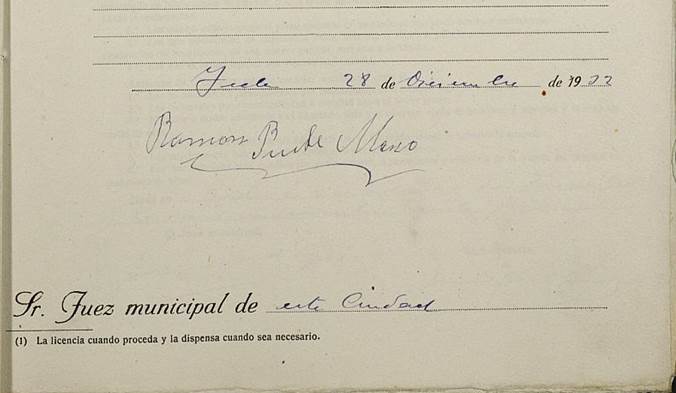 28 de Diciembre de 1922
Ramon Puente
Sr. Juez municipal de esta Ciudad
(1) La licencia cuando proceda y la dispensa cuando sea necesario.